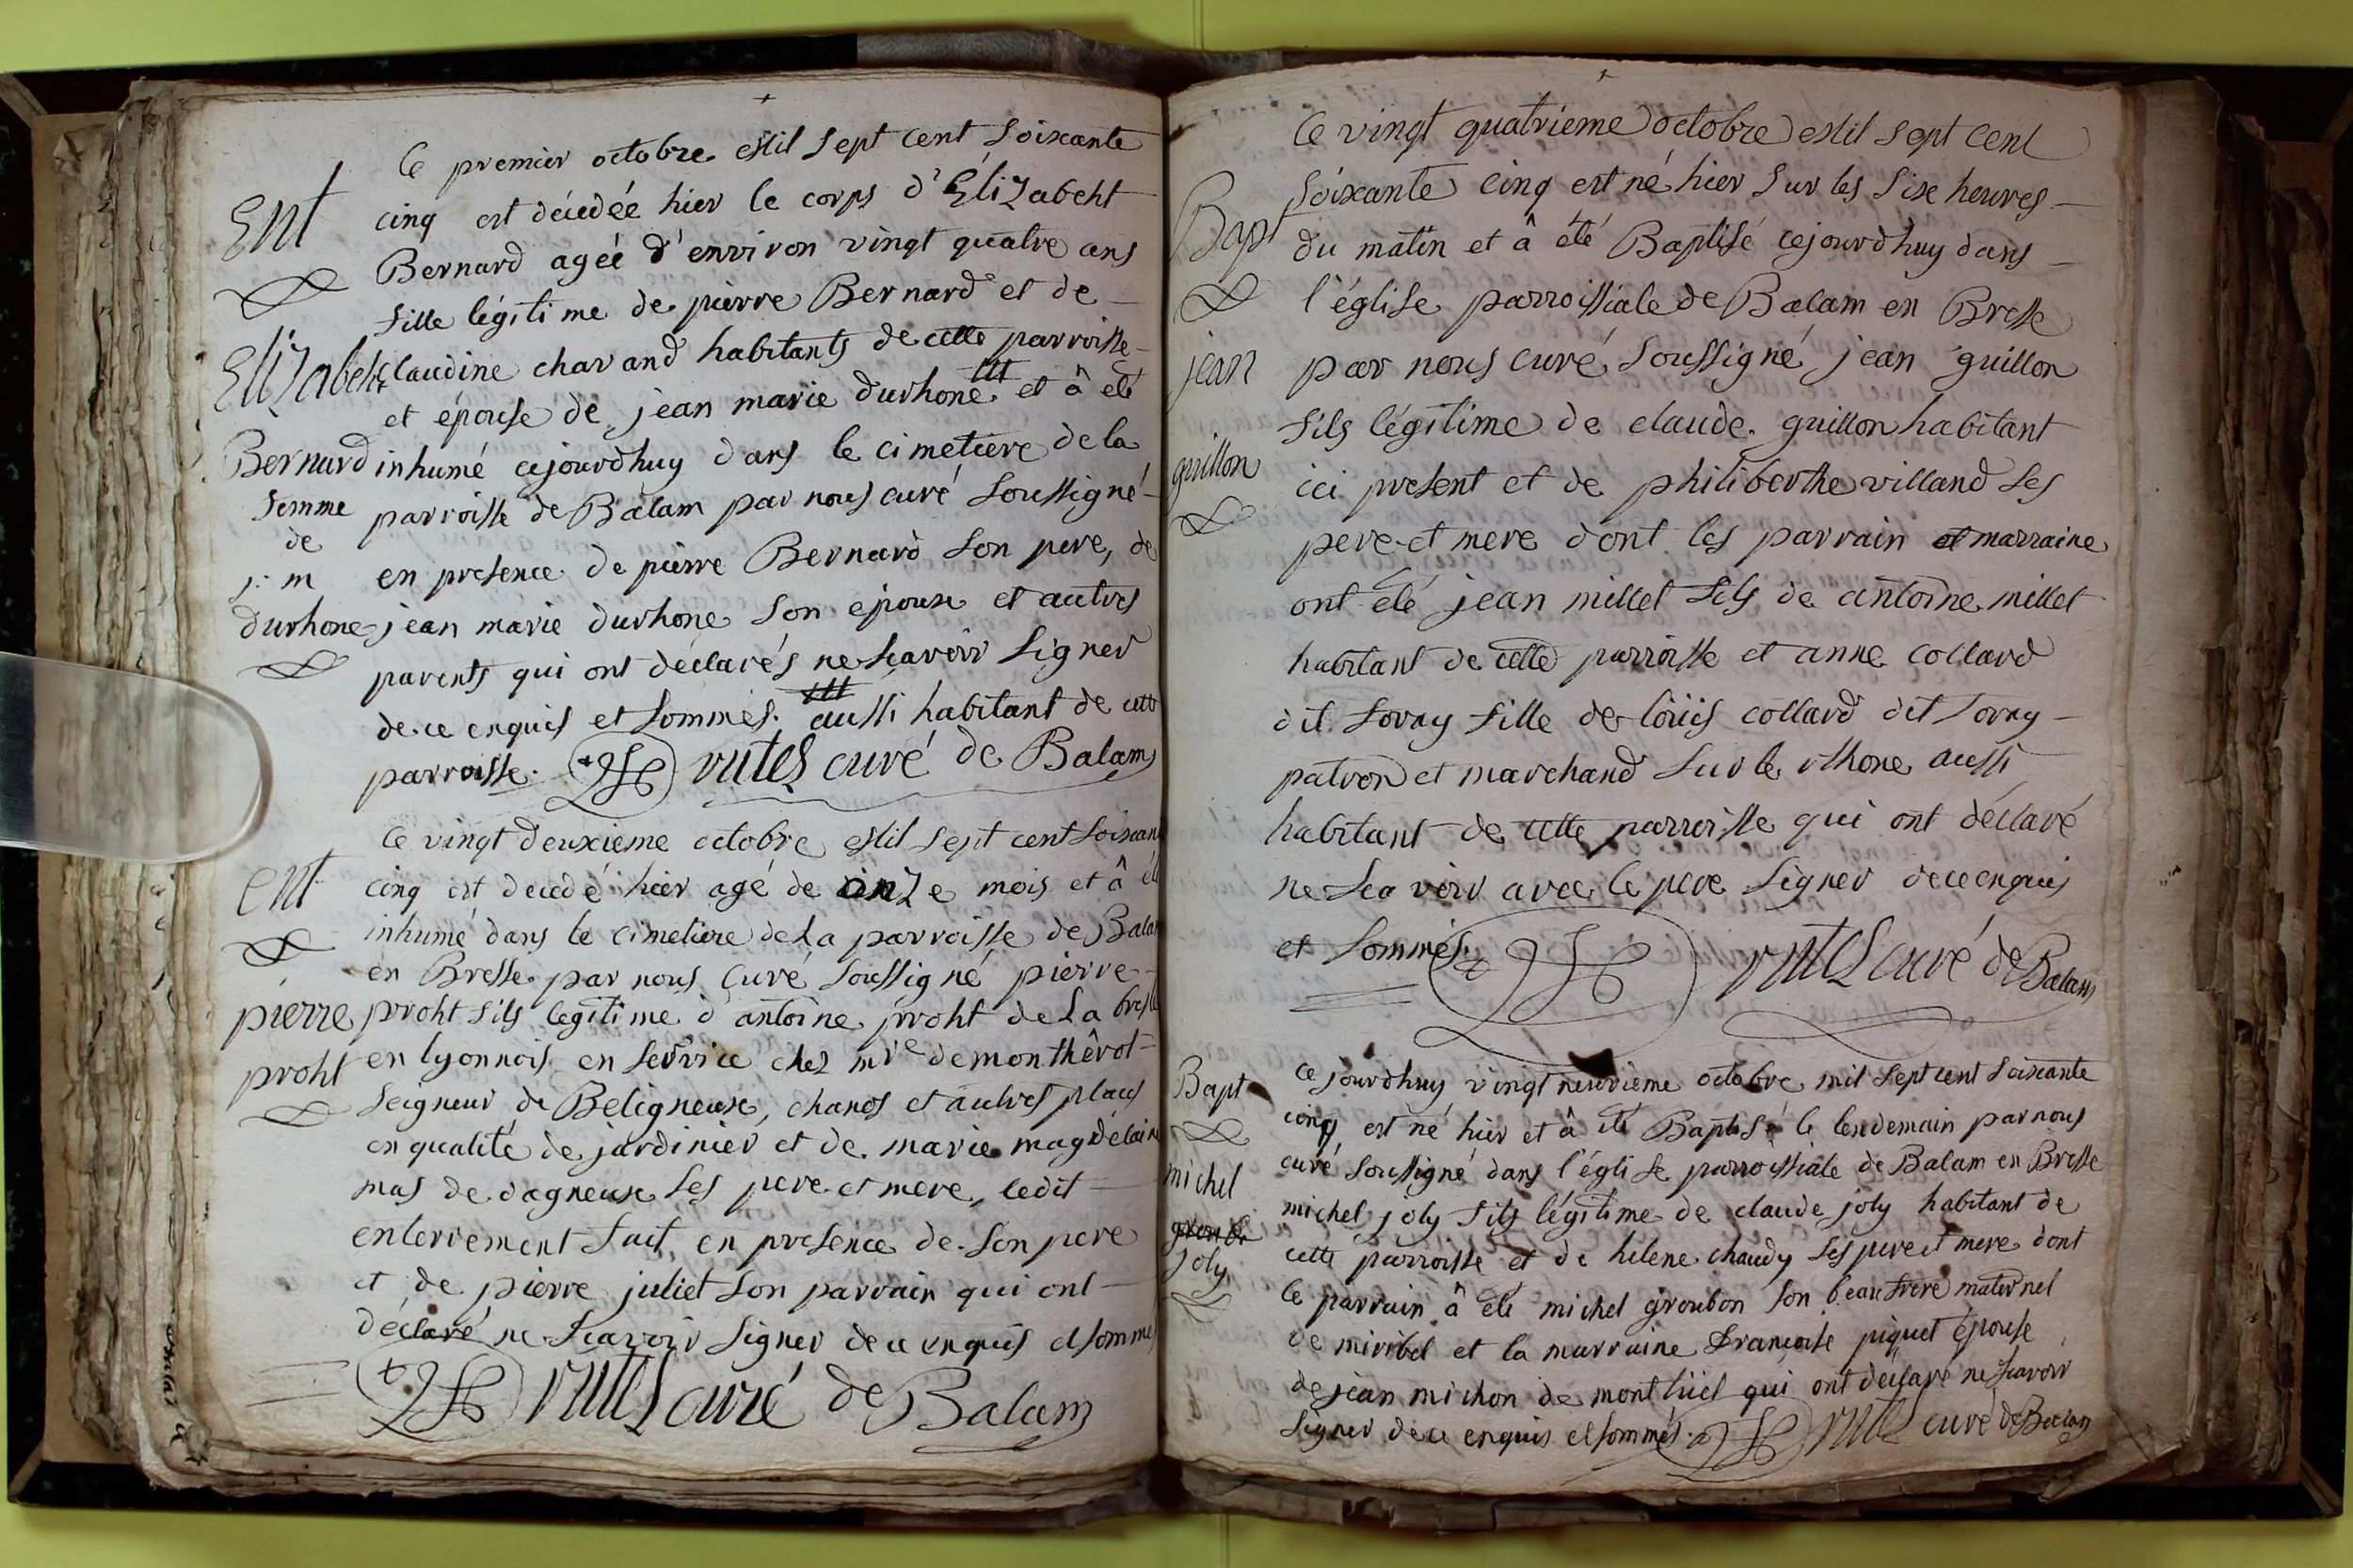 Ent
Elizabeht
Bernard
femme
de
j: m
durhone
Ce premier octobre mil sept cent soixante
cinq est décedée hier le corps d'Elizabeht
Bernard agée d'environ vingt quatre ans
fille légitime de pierre Bernard et de
claudine charand habitants de cette parroisse
et épouse de jean marie durhone et â été
inhumé cejourdhuy dans le cimetière de la
parroisse de Balam par nous curé soussigné
en presence de pierre Bernard son pere, de
jean marie durhone son epoux et autres
parents qui ont déclarés ne sçavoir signer
de ce enquis et sommés. aussi habitant de cette
parroisse. curé de Balam
ent
pierre
proht
Ce vingt deuxieme octobre mil sept cent soixan
cinq est decedé hier agé de onze mois et â été
inhumé dans le cimetiere de la parroisse de Balam
en Bresse par nous curé soussigné pierre
proht fils legitime d'antoine proht de La bresle
en lyonnois en service chez mre de monthêrot
seigneur de Beligneux, chanos et autres places
en qualité de jardinier et de marie magdelaine
mas de dagneux ses pere et mere, ledit
enterrement fait en presence de son pere
et de pierre juliet son parrain qui ont
déclaré ne sçavoir signer de ce enquis et sommé
curé de Balam
Bapt
jean
guillon
Ce vingt quatrieme octobre mil sept cent
soixante cinq est né hier sur les sixe heures
du matin et â été Baptisé cejourdhuy dans
l'église parroissiale de Balam en Bresse
par nous curé soussigné jean guillon
fils légitime de claude guillon habitant
ici present et de philiberthe villand ses
pere et mere dont les parrain et marraine
ont été jean millet fils de antoine millet
habitant de cette parroisse et anne collard
dit sorny fille de loüis collard dit sorny
patron et marchand sur le rhone aussi
habitant de cette parroisse qui ont déclaré
ne sca voir avec le pere signer de ce enquis
et sommés. curé de Balam
Bapt
michel
joly
cejourdhuy vingt neuvieme octobre mil sept cent soixante
cinq est né hier et â été Baptisé le lendemain par nous
curé soussigné dans l'église parroissiale de Balam en Bresse
michel joly fils légitime de claude joly habitant de
cette parroisse et de helene chaudy ses pere et mere dont
le parrain â été michel groubon son beau frere maternel
de miribel et la marraine francoise piquet épouse
de jean michon de montlüel qui ont déclaré ne sçavoir
signer de ce enquis et sommés. curé de Balam